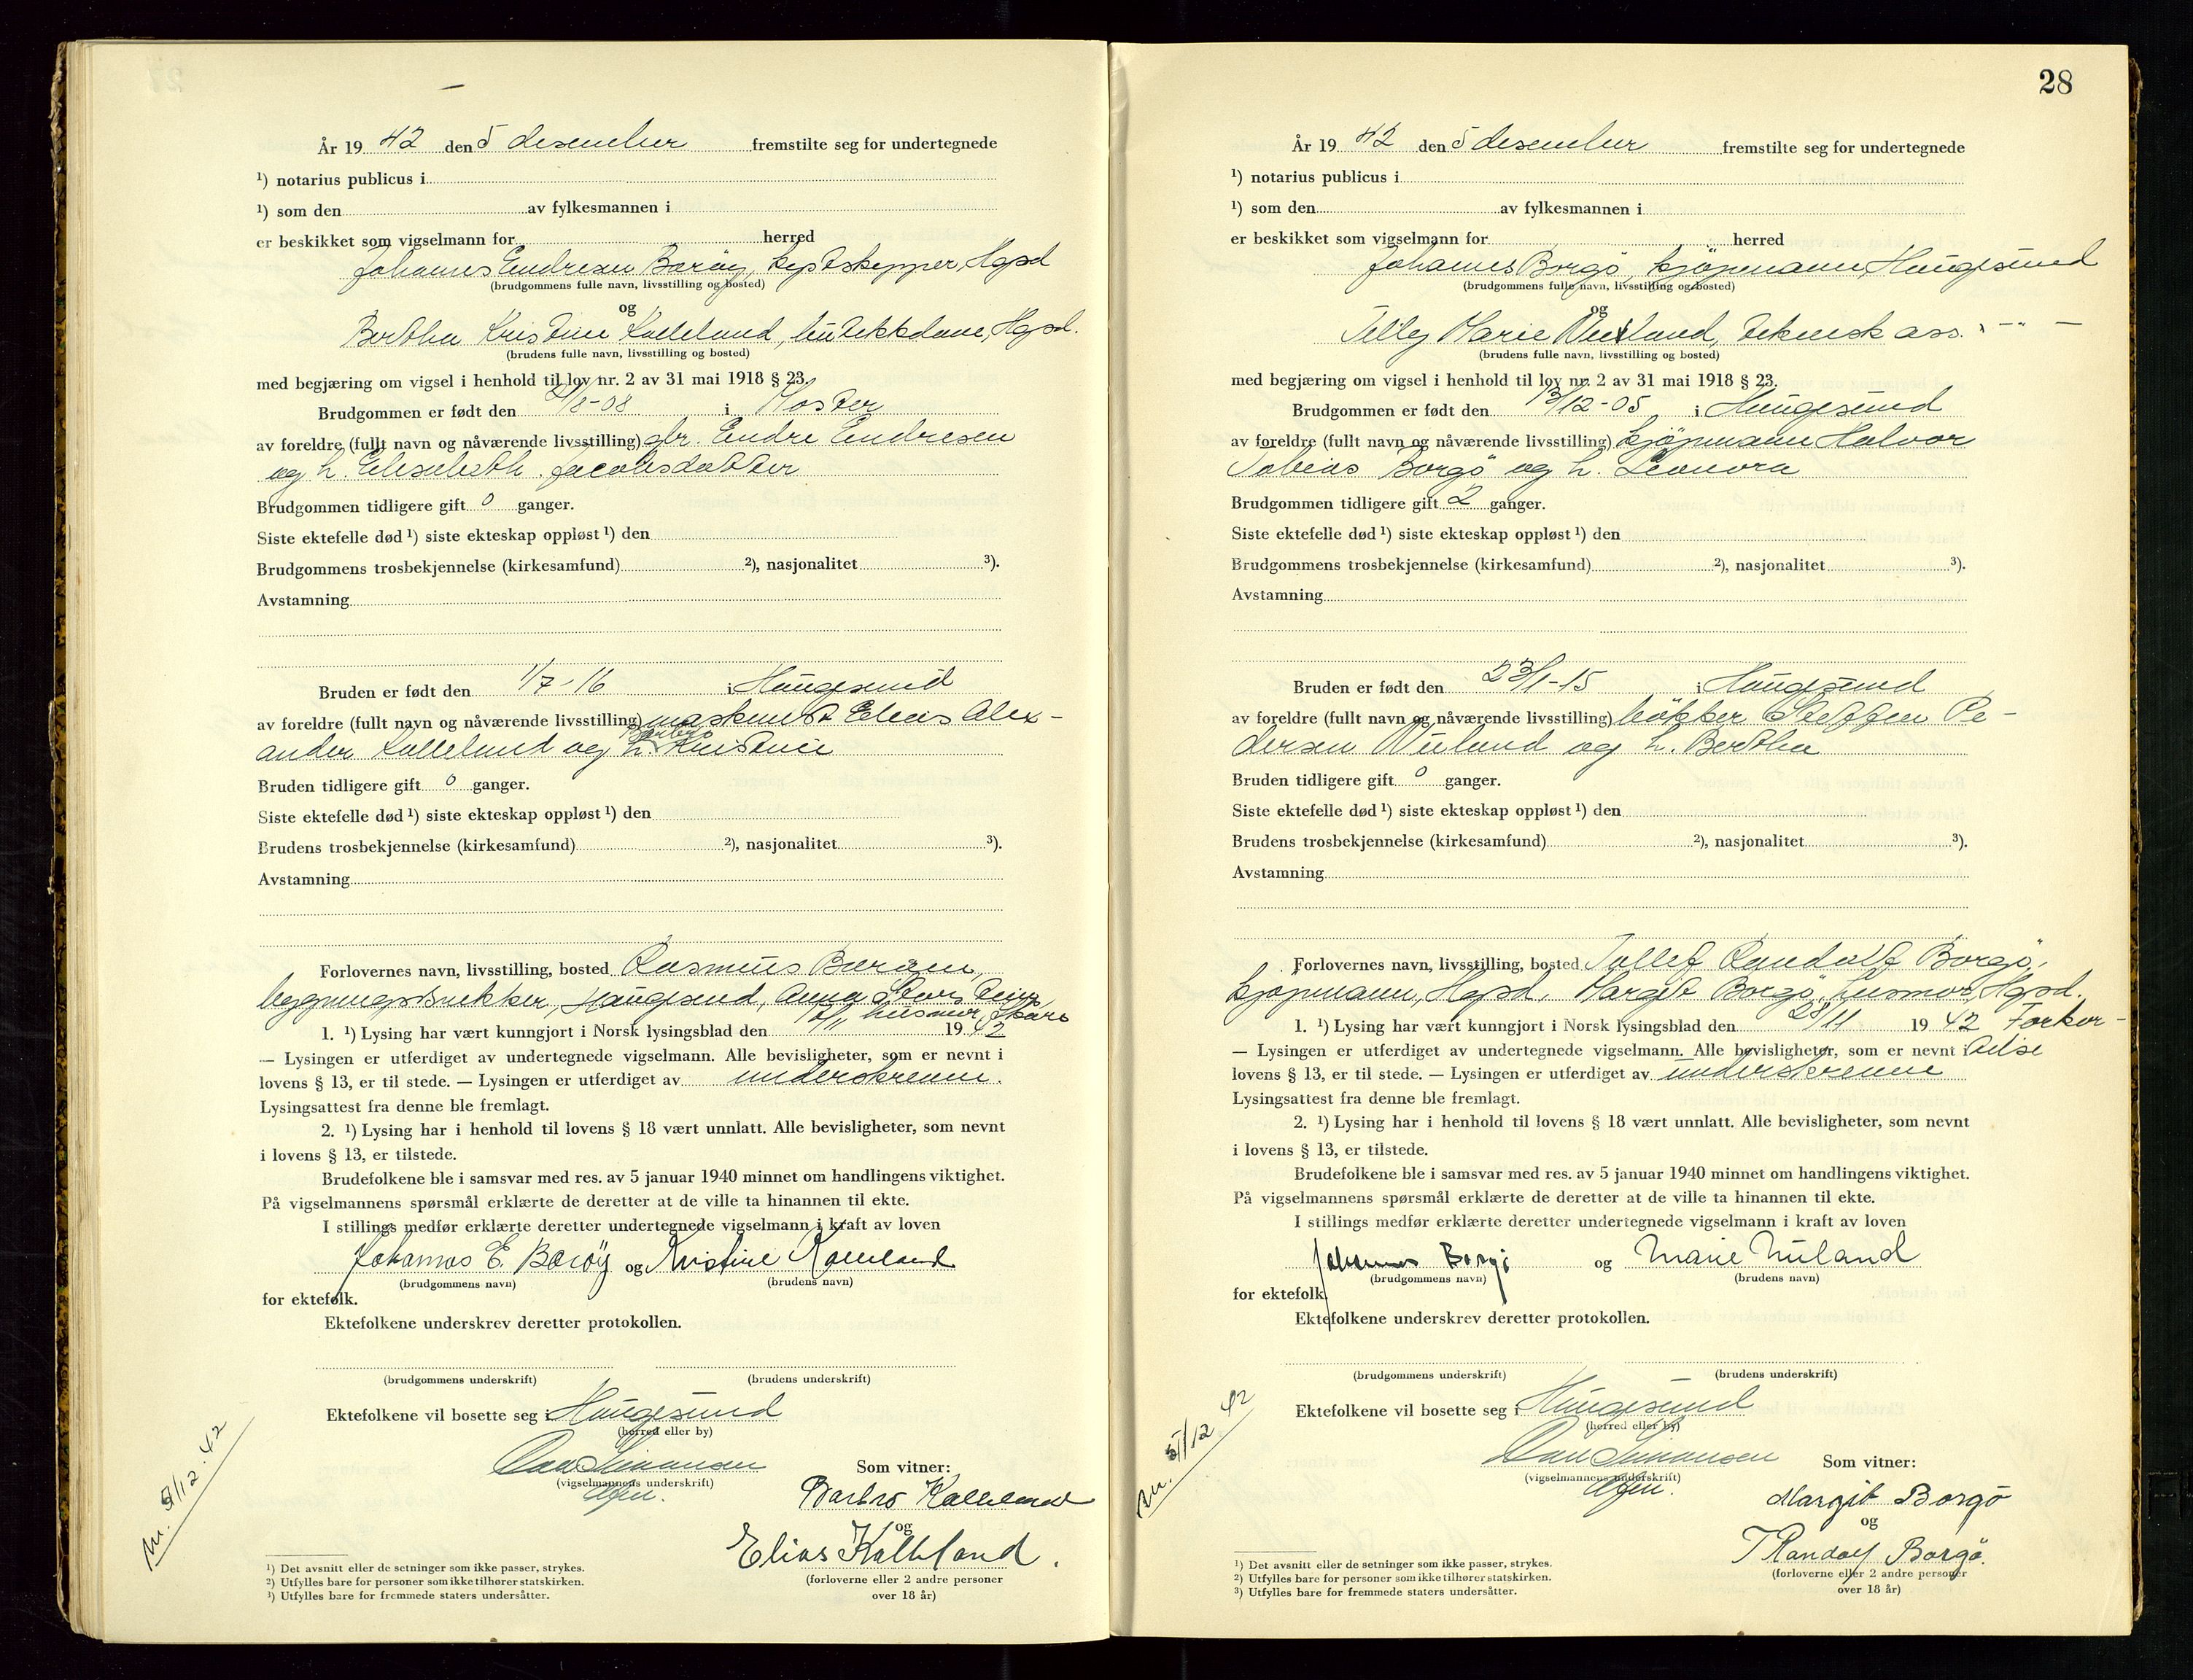 År 19 42 den 5 desember fremstilte seg for undertegnede
¹) notarius publicus i
¹) som den av fylkesmannen i
er beskikket som vigselmann for herred
Johannes Endresen Borøy, Hgsd
(brudgommens fulle navn, livsstilling og bosted)
og
Bertha Kristine Kalleland, butikkdame, Hgsd.
(brudens fulle navn, livsstilling og bosted)
med begjæring om vigsel i henhold til lov nr. 2 av 31 mai 1918 § 23.
Brudgommen er født den /8-08 i Moster
av foreldre (fullt navn og nåværende livsstilling) gbr. Endre Endresen
og h. Elisabeth Jacobsdatter
Brudgommen tidligere gift 0 ganger.
Siste ektefelle død ¹) siste ekteskap oppløst ¹) den
Brudgommens trosbekjennelse (kirkesamfund) ²), nasjonalitet ³).
Avstamning
Bruden er født den 1/7-16 i Haugesund
av foreldre (fullt navn og nåværende livsstilling) maskinist Elias Alex-
Barbro
ander Kalleland og h. Kristine
Bruden tidligere gift 0 ganger.
Siste ektefelle død ¹) siste ekteskap oppløst ¹) den
Brudens trosbekjennelse (kirkesamfund) ²), nasjonalitet ³).
Avstamning
Forlovernes navn, livsstilling, bosted Rasmus Barøen,
bygningssnekker, Haugesund, Anna
husmor, Skåre
1. ¹) Lysing har vært kunngjort i Norsk lysingsblad den /11 19 42
— Lysingen er utferdiget av undertegnede vigselmann. Alle bevisligheter, som er nevnt i
lovens § 13, er til stede. — Lysingen er utferdiget av underskrevne.
Lysingsattest fra denne ble fremlagt.
2. ¹) Lysing har i henhold til lovens § 18 vært unnlatt. Alle bevisligheter, som nevnt
i lovens § 13, er tilstede.
Brudefolkene ble i samsvar med res. av 5 januar 1940 minnet om handlingens viktighet.
På vigselmannens spørsmål erklærte de deretter at de ville ta hinannen til ekte.
I stillings medfør erklærte deretter undertegnede vigselmann i kraft av loven
Johannes E. Borøy og Kristine Kalleland
(brudgommens navn) (brudens navn)
for ektefolk.
Ektefolkene underskrev deretter protokollen.
(brudgommens underskrift) (brudens underskrift)
Ektefolkene vil bosette seg i Haugesund
(herred eller by)
Simonsen Som vitner:
(vigselmannens underskrift)
Barbro Kalleland
og
Elias Kalleland.
(forloverne eller 2 andre personer
over 18 år)
m. 9/12.42
¹) Det avsnitt eller de setninger som ikke passer, strykes.
²) Utfylles bare for personer som ikke tilhører statskirken.
³) Utfylles bare for fremmede staters undersåtter.
28
År 19 42 den 5 desember fremstilte seg for undertegnede
¹) notarius publicus i
¹) som den av fylkesmannen i
er beskikket som vigselmann for herred
Johannes Borgø, kjøpmann, Haugesund
(brudgommens fulle navn, livsstilling og bosted)
og
Marie Niland, teknisk ass. - " -
(brudens fulle navn, livsstilling og bosted)
med begjæring om vigsel i henhold til lov nr. 2 av 31 mai 1918 § 23.
Brudgommen er født den 13/12-05 i Haugesund
av foreldre (fullt navn og nåværende livsstilling) kjøpmann Halvor
Tobias Borgø og h. Leonora
Brudgommen tidligere gift 2 ganger.
Siste ektefelle død ¹) siste ekteskap oppløst ¹) den
Brudgommens trosbekjennelse (kirkesamfund) ²), nasjonalitet ³).
Avstamning
Bruden er født den 23/1-15 i Haugesund
av foreldre (fullt navn og nåværende livsstilling) bøkker Steffen Pe-
dersen Niland og h. Bertha
Bruden tidligere gift 0 ganger.
Siste ektefelle død ¹) siste ekteskap oppløst ¹) den
Brudens trosbekjennelse (kirkesamfund) ²), nasjonalitet ³).
Avstamning
Forlovernes navn, livsstilling, bosted Tollef Randolf Borgø,
kjøpmann, Hgsd, Margit Borgø, husmor, Hgsd.
1. ¹) Lysing har vært kunngjort i Norsk lysingsblad den 28/11 19 42
— Lysingen er utferdiget av undertegnede vigselmann. Alle bevisligheter, som er nevnt i
lovens § 13, er til stede. — Lysingen er utferdiget av underskrevne
Lysingsattest fra denne ble fremlagt.
2. ¹) Lysing har i henhold til lovens § 18 vært unnlatt. Alle bevisligheter, som nevnt
i lovens § 13, er tilstede.
Brudefolkene ble i samsvar med res. av 5 januar 1940 minnet om handlingens viktighet.
På vigselmannens spørsmål erklærte de deretter at de ville ta hinannen til ekte.
I stillings medfør erklærte deretter undertegnede vigselmann i kraft av loven
Johannes Borgø og Marie Niland
(brudgommens navn) (brudens navn)
for ektefolk.
Ektefolkene underskrev deretter protokollen.
(brudgommens underskrift) (brudens underskrift)
Ektefolkene vil bosette seg i Haugesund
(herred eller by)
Simonsen Som vitner:
(vigselmannens underskrift)
Margit Borgø
og
T Randolf Borgø.
(forloverne eller 2 andre personer
over 18 år)
¹) Det avsnitt eller de setninger som ikke passer, strykes.
²) Utfylles bare for personer som ikke tilhører statskirken.
³) Utfylles bare for fremmede staters undersåtter.